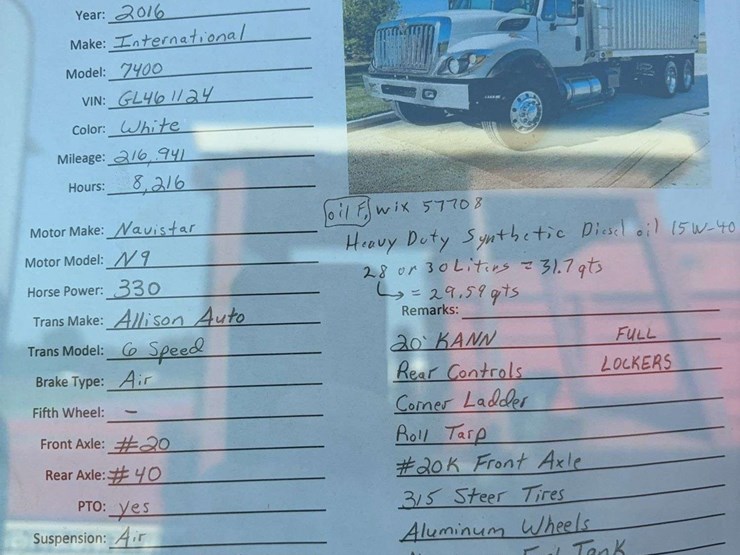 Year: 2016
Make: International
Model: 7400
VIN: GL461124
Color: White
Mileage: 216,941
Hours: 8,216
Motor Make: Navistar
Motor Model: N9
Horse Power: 330
Trans Make: Allison Auto
Trans Model: 6 Speed
Brake Type: Air
Fifth Wheel: -
Front Axle: #20
Rear Axle: #40
PTO: yes
Suspension: Air
oil F. wix 57708
Heavy Duty Synthetic Diesel oil 15W-40
28 or 30 Liters = 31.7 qts
↳ = 29.59 qts
Remarks:
20' KANN FULL
Rear Controls LOCKERS
Corner Ladder
Roll Tarp
#20K Front Axle
315 Steer Tires
Aluminum Wheels
Tank